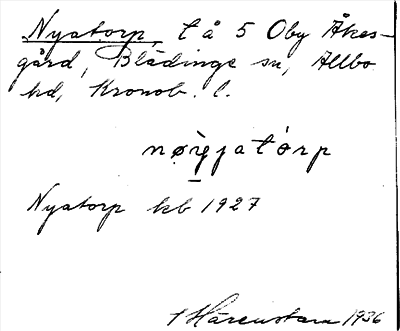 Nyatorp, t å 5 Oby Åkes-
gård, Blädinge sn, Allbo
hd, Kronob. l.
Nyatorp kb 1927
Härenstam 1936